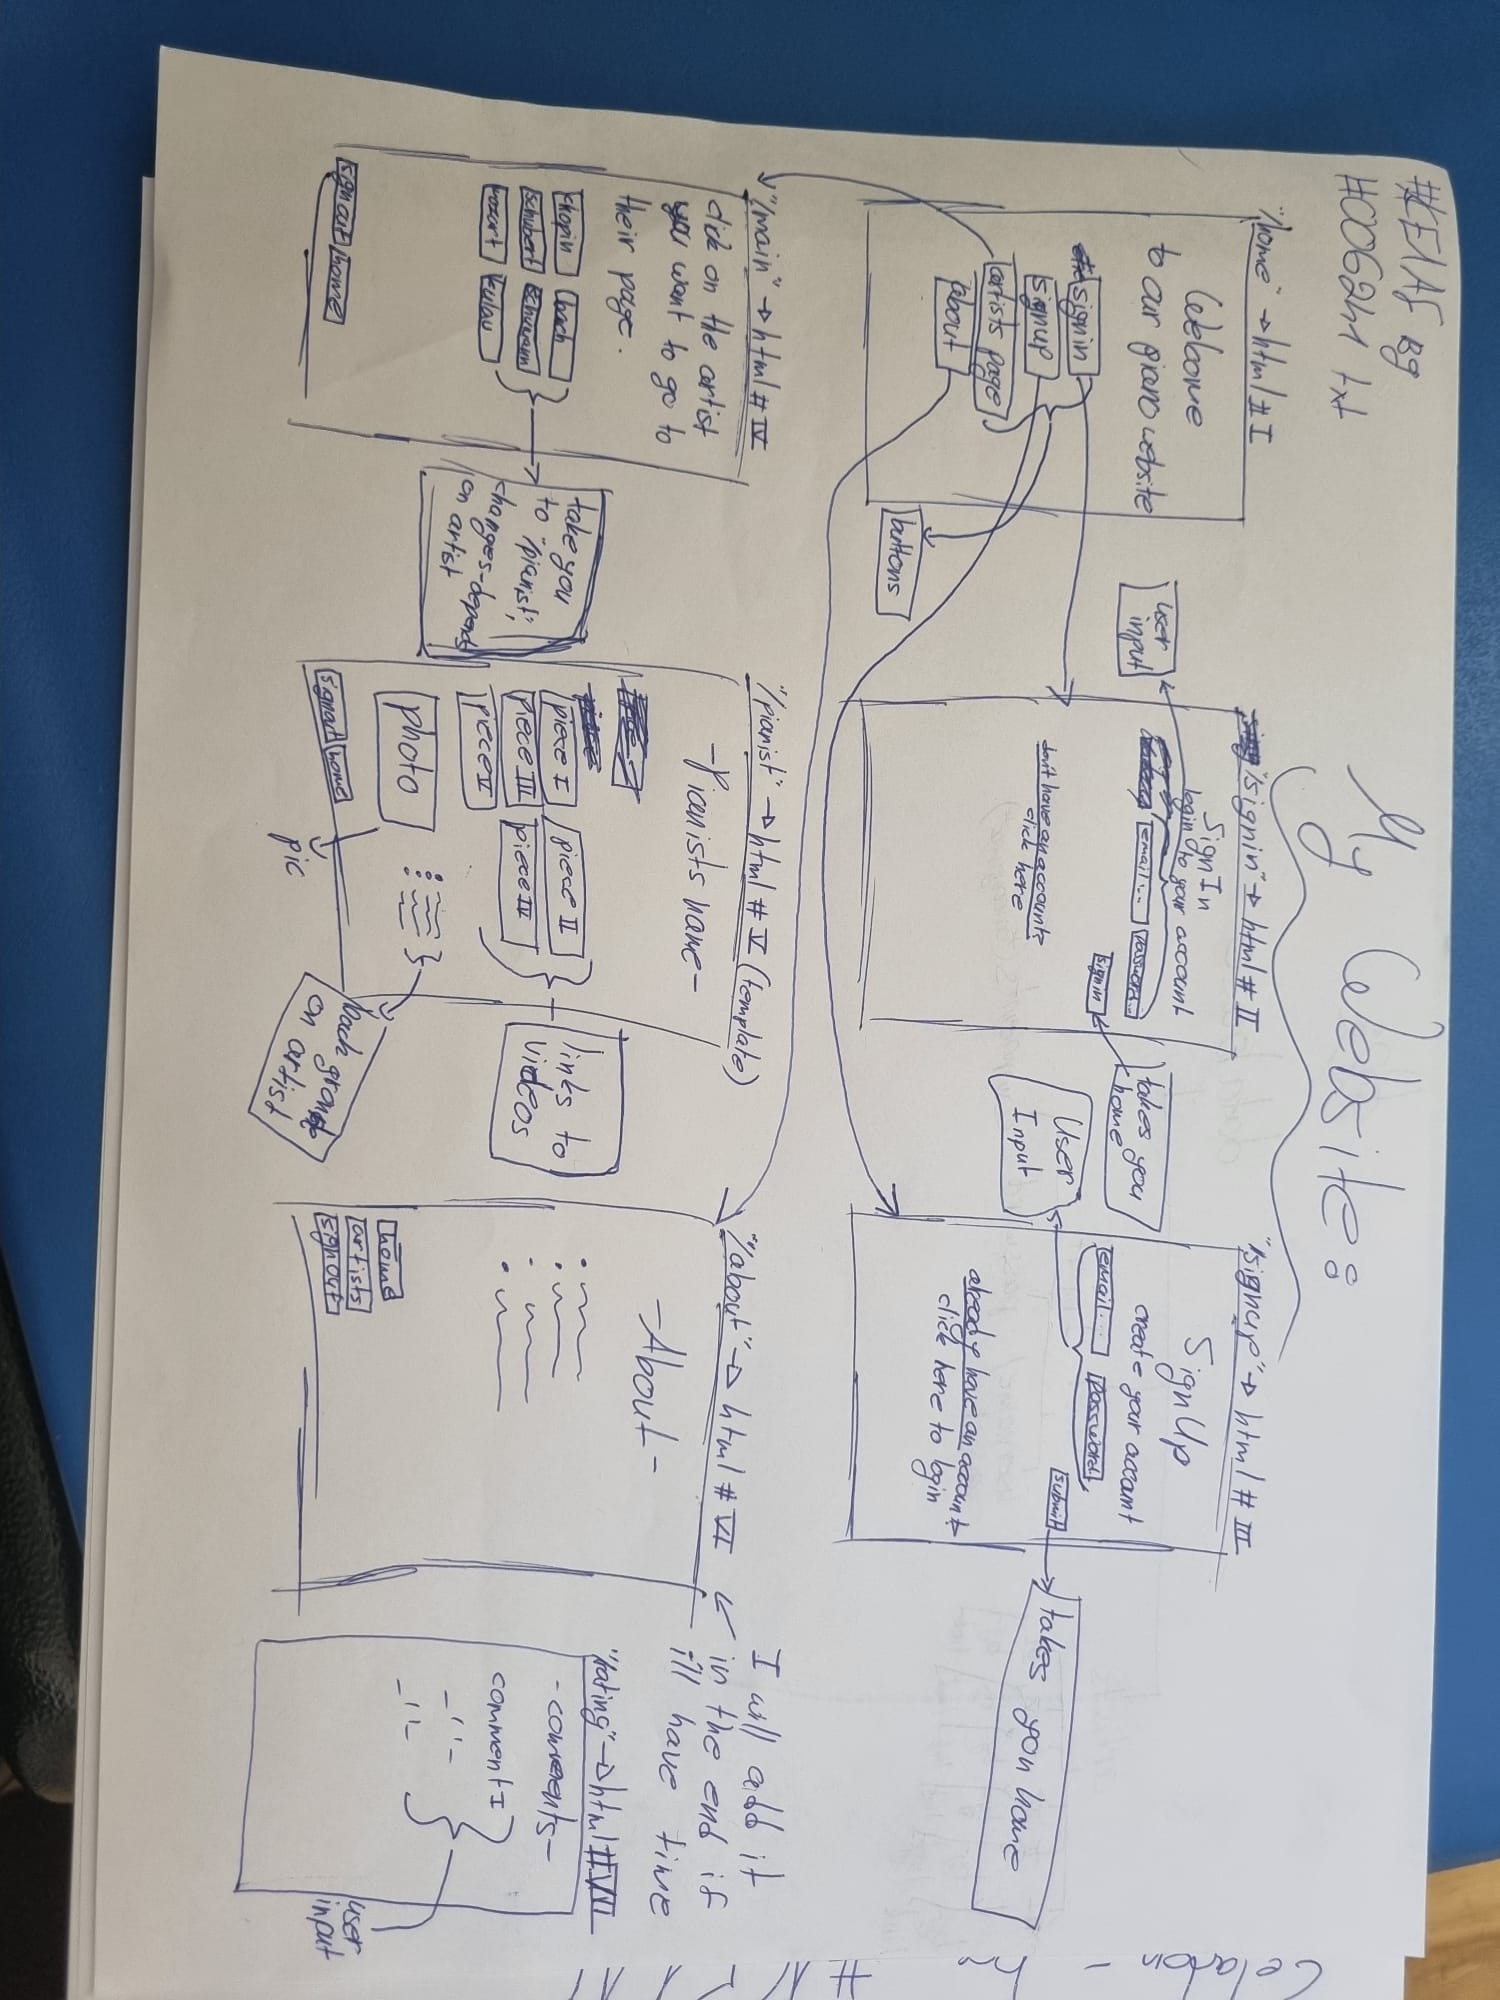 My Website:
bg
txt
"/home" → html # I
Welcome
to our piano website
signin
signup
artists page
about
buttons
"/signin" → html # II
Sign In
login to your account
email...
password...
signin
don't have an account
click here
user
input
takes you
home
"/signup" → html # III
Sign Up
create your account
email...
password
submit
already have an account
click here to login
User
Input
takes you home
"/main" → html # IV
click on the artist
you want to go to
their page.
chopin
bach
schubert
schumann
mozart
signout
home
take you
to "/pianist",
changes-depends
on artist
"/pianist" → html # V (template)
- Pianists name -
piece I
piece II
piece III
piece IV
piece V
photo
signout
home
pic
links to
videos
back ground
on artist
"/about" → html # VI
- About -
home
artists
signout
I will add it
in the end if
ill have time
"/rating" → html # VII
- comments -
comment I
user
input